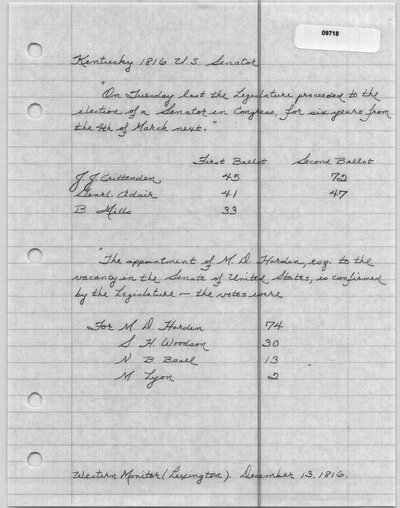 09718
Kentucky 1816 U.S. Senator
"On Tuesday last the Legislature proceeded to the
election of a Senator in Congress, for six years from
the 4th of March next."
First Ballot Second Ballot
J J. Crittenden 45 72
Genrl. Adair 41 47
B Mills 33
"The appointment of M. D. Hardin, esq. to the
vacancy in the Senate of United States, is confirmed
by the Legislature — the votes were
For M D Hardin 74
S H. Woodson 30
N B 13
M Lyon 2
Western Monitor (Lexington). December 13, 1816.